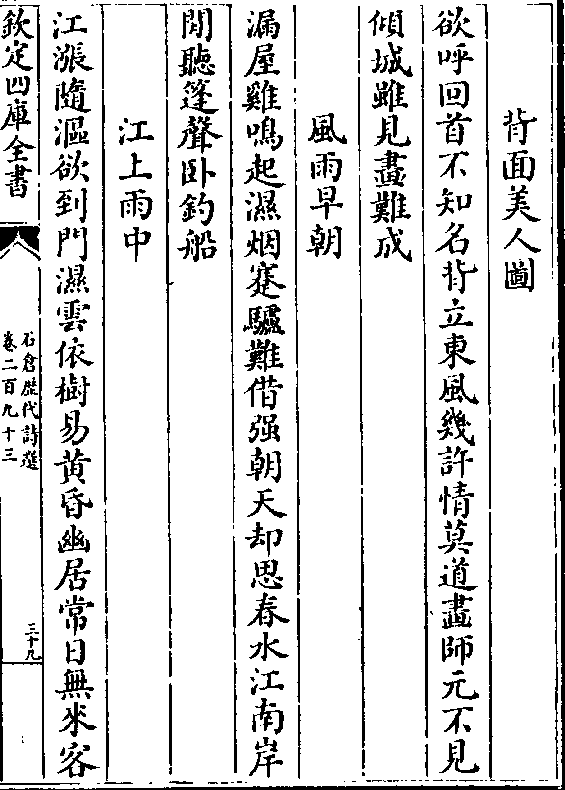 背面美人圖
欲呼回首不知名背立東風幾許情莫道畫師元不見
傾城雖見畫難成
風雨早朝
漏屋雞鳴起濕烟蹇驢難借强朝天却思春水江南岸
閒聽篷聲卧釣船
江上雨中
江漲隨漚欲到門濕雲依樹易黄昏幽居常日無來客
欽定四庫全書
石倉歴代詩選
卷二百九十三
三十九